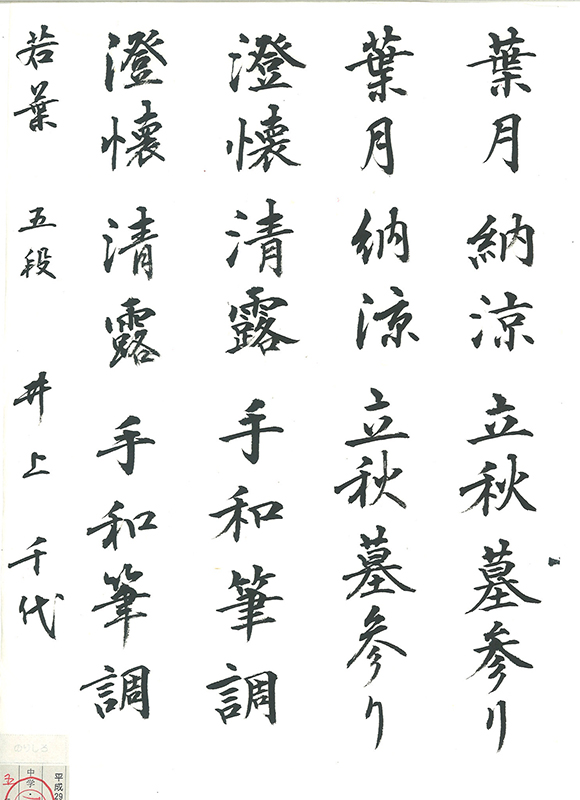 葉月 納涼 立秋 墓参り
葉月 納涼 立秋 墓参り
澄懐 清露 手和筆調
澄懐 清露 手和筆調
若葉 五段 井上 千代
のりしろ
平成29
中学・